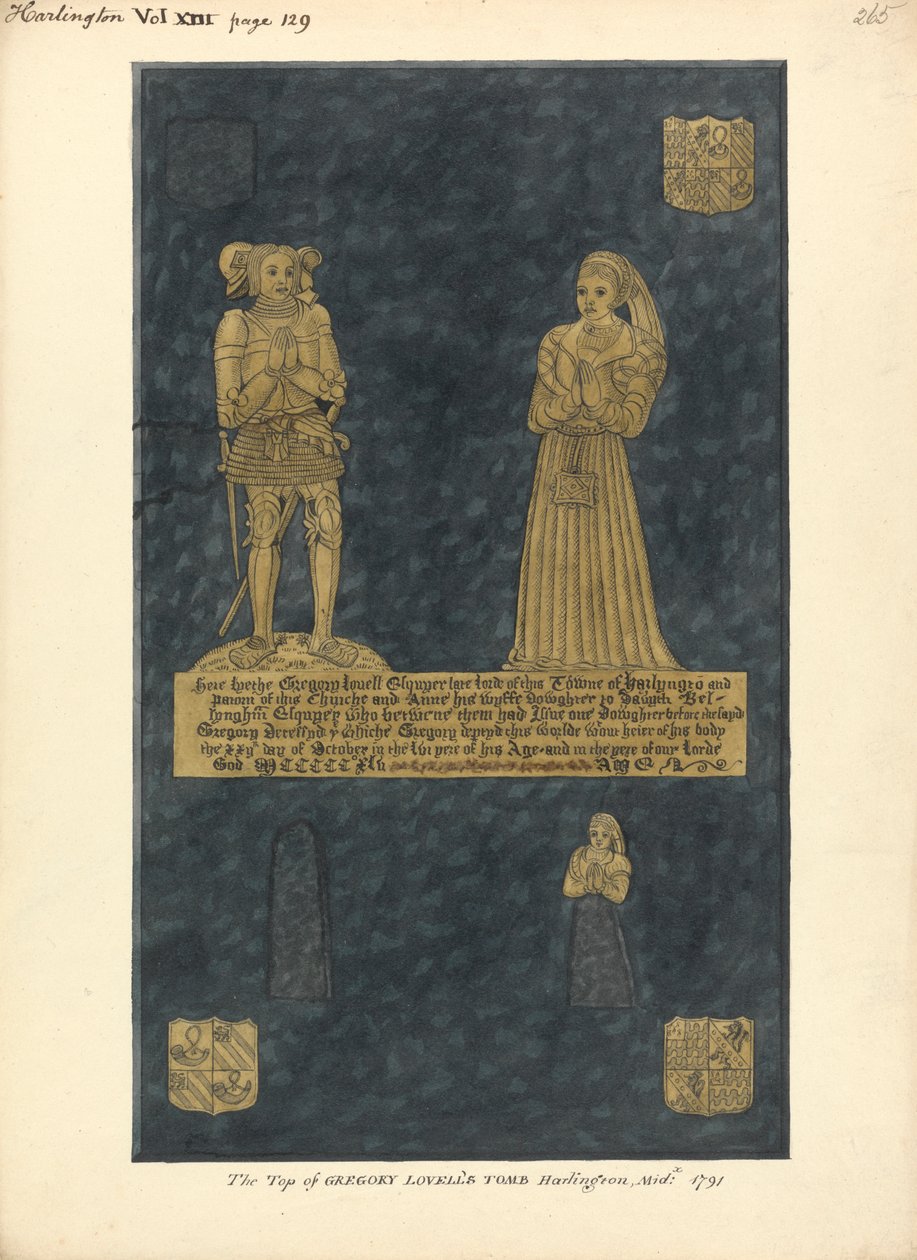 Harlington Vol XIII page 129
265
Here lyethe Gregory Lovell Esquyer late lorde of this Towne of Harlyngtō and
patorn of this Churche and Anne his wyffe Dowghter to Davyth Bel-
lynghm̄ Esquyer who betwene them had Issue one Dowghter before the sayd
Gregory Decessyd yͤ whiche Gregory depted this worlde wᵗout heier of his body
the xxyͭʰ day of October in the lvi yere of his Age and in the yere of our Lorde
God MCCCCC°xlv AMEN
The Top of GREGORY LOVELL'S TOMB Harlington, Midˣ: 1791